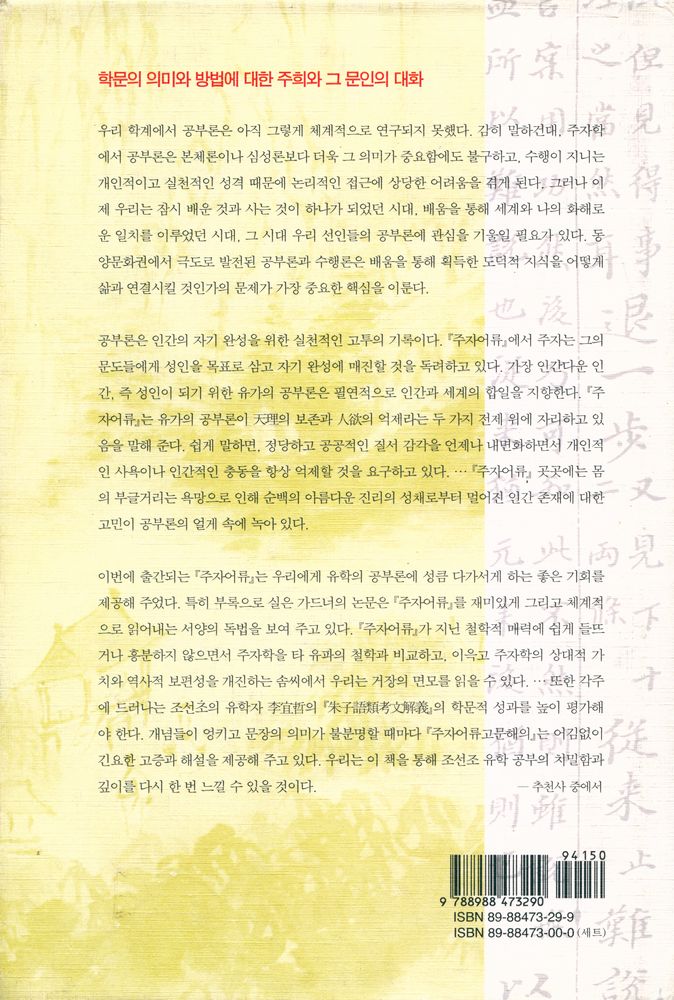 학문의 의미와 방법에 대한 주희와 그 문인의 대화
우리 학계에서 공부론은 아직 그렇게 체계적으로 연구되지 못했다. 감히 말하건대, 주자학
에서 공부론은 본체론이나 심성론보다 더욱 그 의미가 중요함에도 불구하고, 수행이 지니는
개인적이고 실천적인 성격 때문에 논리적인 접근에 상당한 어려움을 겪게 된다. 그러나 이
제 우리는 잠시 배운 것과 사는 것이 하나가 되었던 시대, 배움을 통해 세계와 나의 화해로
운 일치를 이루었던 시대, 그 시대 우리 선인들의 공부론에 관심을 기울일 필요가 있다. 동
양문화권에서 극도로 발전된 공부론과 수행론은 배움을 통해 획득한 도덕적 지식을 어떻게
삶과 연결시킬 것인가의 문제가 가장 중요한 핵심을 이룬다.
공부론은 인간의 자기 완성을 위한 실천적인 고투의 기록이다. 『주자어류』에서 주자는 그의
문도들에게 성인을 목표로 삼고 자기 완성에 매진할 것을 독려하고 있다. 가장 인간다운 인
간, 즉 성인이 되기 위한 유가의 공부론은 필연적으로 인간과 세계의 합일을 지향한다. 『주
자어류』는 유가의 공부론이 天理의 보존과 人欲의 억제라는 두 가지 전제 위에 자리하고 있
음을 말해 준다. 쉽게 말하면, 정당하고 공공적인 질서 감각을 언제나 내면화하면서 개인적
인 사욕이나 인간적인 충동을 항상 억제할 것을 요구하고 있다. … 『주자어류』 곳곳에는 몸
의 부글거리는 욕망으로 인해 순백의 아름다운 진리의 성채로부터 멀어진 인간 존재에 대한
고민이 공부론의 얼게 속에 녹아 있다.
이번에 출간되는 『주자어류』는 우리에게 유학의 공부론에 성큼 다가서게 하는 좋은 기회를
제공해 주었다. 특히 부록으로 실은 가드너의 논문은 『주자어류』를 재미있게 그리고 체계적
으로 읽어내는 서양의 독법을 보여 주고 있다. 『주자어류』가 지닌 철학적 매력에 쉽게 들뜨
거나 흥분하지 않으면서 주자학을 타 유파의 철학과 비교하고, 이윽고 주자학의 상대적 가
치와 역사적 보편성을 개진하는 솜씨에서 우리는 거장의 면모를 읽을 수 있다. … 또한 각주
에 드러나는 조선초의 유학자 李宜哲의 『朱子語類考文解義』의 학문적 성과를 높이 평가해
야 한다. 개념들이 엉키고 문장의 의미가 불분명할 때마다 『주자어류고문해의』는 어김없이
긴요한 고증과 해설을 제공해 주고 있다. 우리는 이 책을 통해 조선조 유학 공부의 치밀함과
깊이를 다시 한 번 느낄 수 있을 것이다.
— 추천사 중에서
94150
9 788988 473290
ISBN 89-88473-29-9
ISBN 89-88473-00-0 (세트)
但見得事退一步又見下十從來止難說